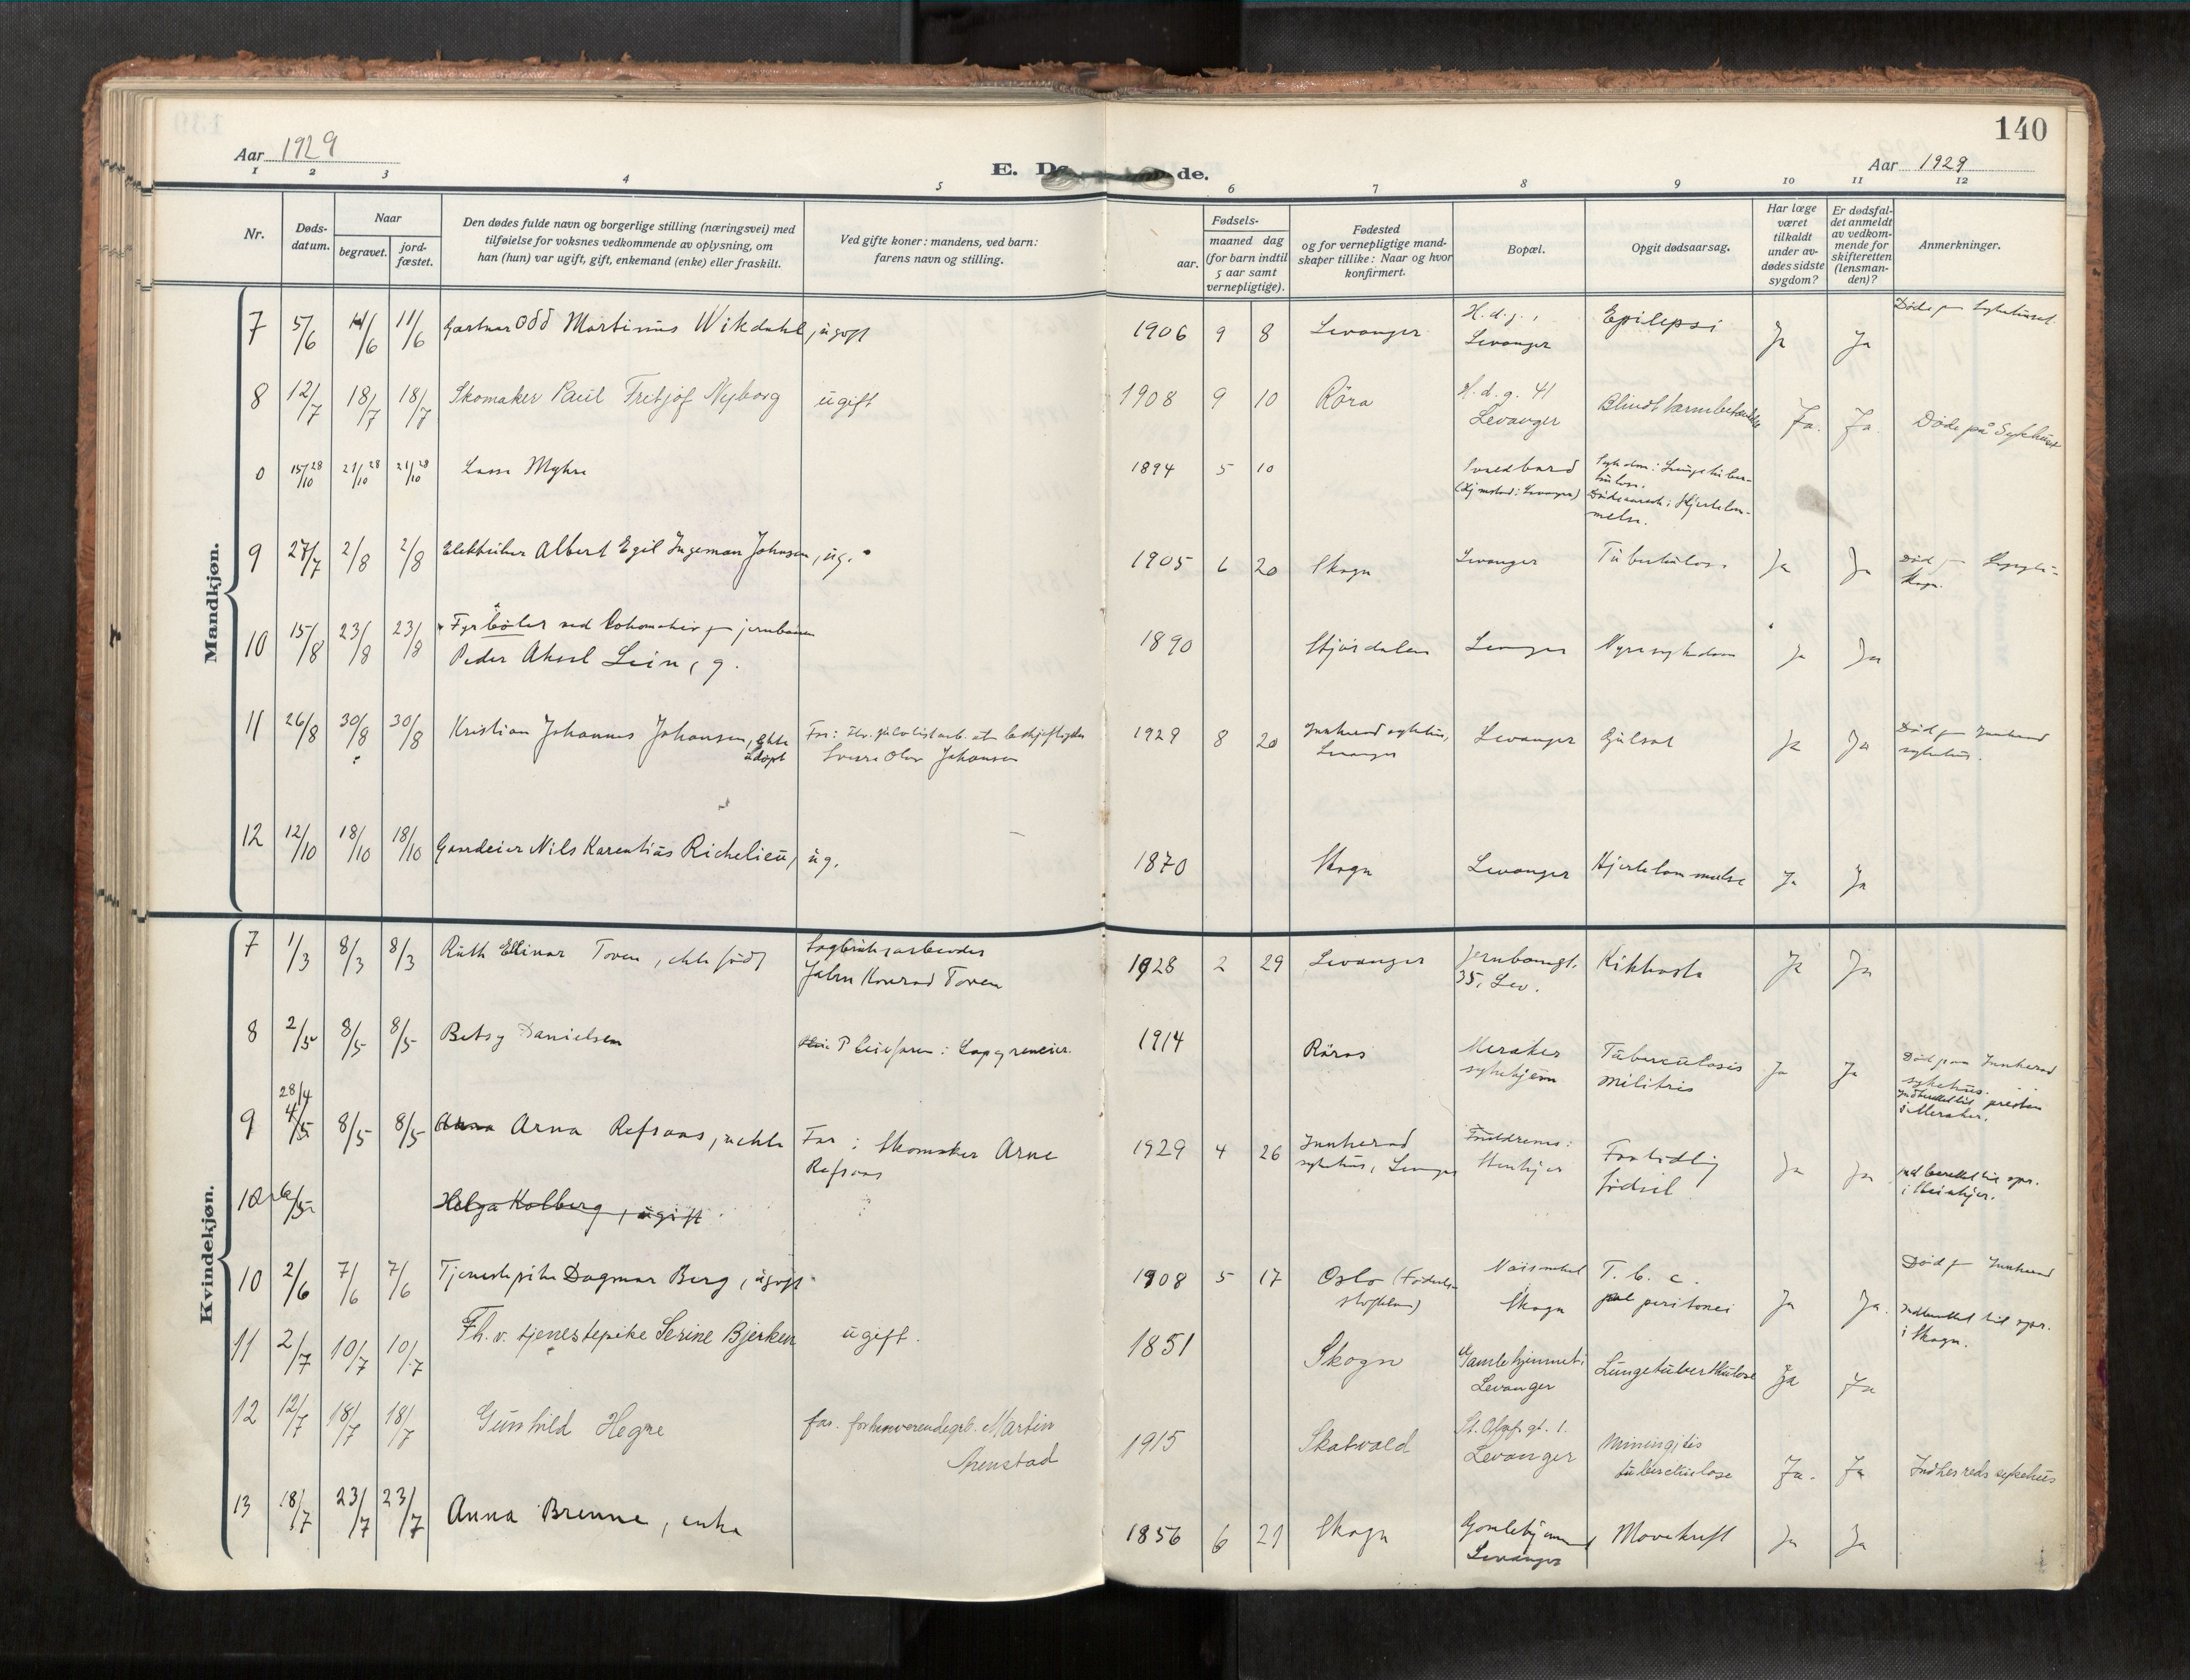 140
Aar 1929
E. Dø de.
Aar 1929
1 2 3 4 5 6 7 8 9 10 11 12
Nr.
Døds-
datum.
Naar
begravet.
jord-
fæstet.
Den dødes fulde navn og borgerlige stilling (næringsvei) med
tilføielse for voksnes vedkommende av oplysning, om
han (hun) var ugift, gift, enkemand (enke) eller fraskilt.
Ved gifte koner: mandens, ved barn:
farens navn og stilling.
Fødsels-
aar.
maaned dag
(for barn indtil
5 aar samt
vernepligtige).
Fødested
og for vernepligtige mand-
skaper tillike: Naar og hvor
konfirmert.
Bopæl.
Opgit dødsaarsag.
Har læge
været
tilkaldt
under av-
dødes sidste
sygdom?
Er dødsfal-
det anmeldt
av vedkom-
mende for
skifteretten
(lensman-
den)?
Anmerkninger.
Mandkjøn.
7 5/6 11/6 11/6 Gartner Odd Martinus Wikdahl, ugift 1906 9 8 Levanger H. d. g., Epilepsi Ja Ja Døde på Sykehuset
Levanger
8 12/7 18/7 18/7 Skomaker Paul Fritjof Nyborg ugift 1908 9 10 Röra H. d. g. 41 Blindtarmbetændelse Ja. Ja Døde på Sykehuset
Levanger
0 15/10 28 21/10 28 21/10 28 Lasse Myhre 1894 5 10 Svalbard Sykdom: Lungetuber-
(Hjemsted: Levanger) kulose.
Dødsaarsak: Hjertelam-
melse.
9 27/7 2/8 2/8 Elektriker Albert Egil Ingeman Johnsen, ug. 1905 6 20 Skogn Levanger Tuberkulose Ja Ja Død på
Skogn.
10 15/8 23/8 23/8 Fyrbøter ved lokomotiv på jernbanen
Peder Aksel Lein, g. 1890 Stjørdalen Levanger Nyresykdom Ja Ja
11 26/8 30/8 30/8 Kristian Johannes Johansen, ekte Far: 1929 8 20 Innherad sykehus, Levanger Gulsot Ja Ja Død på Innherad
døpt Sverre Olav Johansen Levanger sykehus.
12 12/10 18/10 18/10 Gaardeier Nils Karentius Richelieu, ug. 1870 Skogn Levanger Hjertelammelse Ja Ja
Kvindekjøn.
7 1/3 8/3 8/3 Ruth Elinor Toven, ekte født Sagbruksarbeider 1928 2 29 Levanger Jernbanegt. Kikhoste Ja Ja
John Konrad Toven 35, Lev.
8 2/5 8/5 8/5 Betsy Danielsen P leiefaren: 1914 Röros Meraker Tuberculosis Ja Ja Død paa Innherad
sykehjem militris sykehus.
Indberettet til presten
i Meraker.
28/4
9 4/5 8/5 8/5 Anna Arna Refsaas, uekte Far: Skomaker Arne 1929 4 26 Innherad Foreldrenes: Fortidlig Ja Ja Indberettet til spr.
Refsaas sykehus, Levanger Steinkjer fødsel i Steinkjer.
10 6/5 Helga Kolberg, ugift
10 2/6 7/6 7/6 Tjenestepike Dagmar Berg, ugift 1908 5 17 Oslo (Fødsels- T. b. c. Ja Ja. Død på Innherad
stiftelsen) Skogn peritonei Indberettet til spr.
i Skogn.
11 2/7 10/7 10/7 Fh. v. tjenestepike Serine Bjerken ugift. 1851 Skogn Gamlehjemmet i Lungetuberkulose Ja Ja
Levanger
12 12/7 18/7 18/7 Gunhild Hegre far. forhenverendegrb. Martin 1915 Skatvald St. Olafs gt. 1. Miningitis Ja. Ja Indherreds sykehus
Levanger tuberkulose
13 18/7 23/7 23/7 Anna Brenne, enke 1856 6 21 Skogn Gamlehjemmet Mavekreft Ja Ja
Levanger